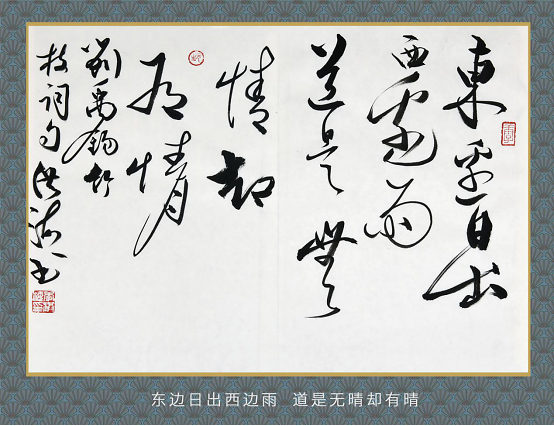 東邊日出
西邊雨
道是無
情却
有情
劉禹錫竹
枝詞句洪
东边日出西边雨 道是无晴却有晴